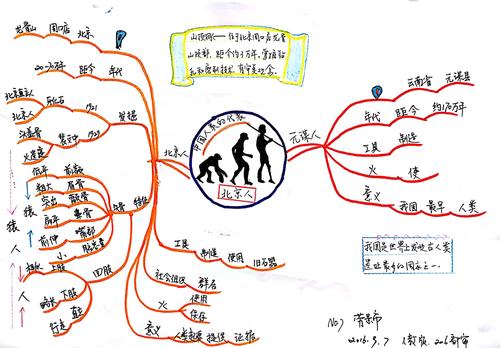 山顶洞人——位于北京周口店龙骨
山顶部，距今约3万年，掌握钻
中国人类的代表
北京人
北京人
龙骨山 周口店 北京
20-70万年 距今 年代
北京直立人 化石 1921
北京人
头盖骨 裴文中 1929
火 发掘
低平 前额
粗大 眉骨
突出 颧骨
扁平 鼻骨
前伸 嘴部
小 脑容量
头骨 特征
猿 人
粗壮 上肢
四肢
下肢
行走 直立
人
工具 制造 使用 旧石器
社会组织 群居
火 使用
保存
意义 人类起源 提供 证据
元谋人
云南省 元谋县
年代 距今 约170万年
工具 制造
火 使
意义 我国 最早 人类
我国是世界上发现古人类
遗址最多的国家之一
No7
2016.3.7 人教版